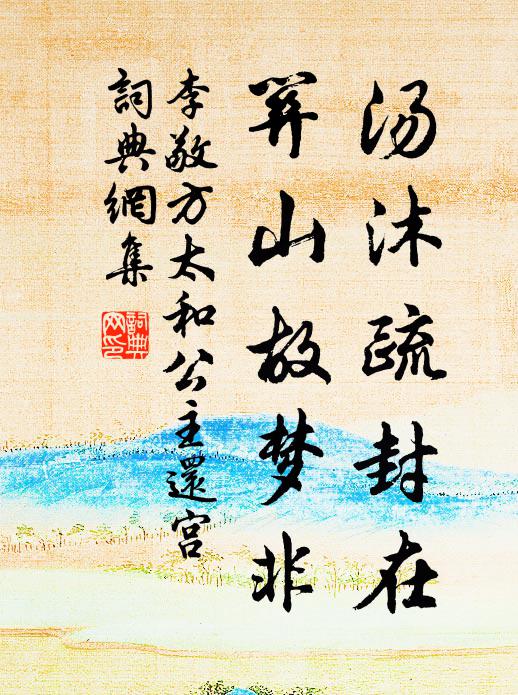 汤沐疏封在
關山故梦非
李敬方太和公主還宫
詞典網集
詞典
网印